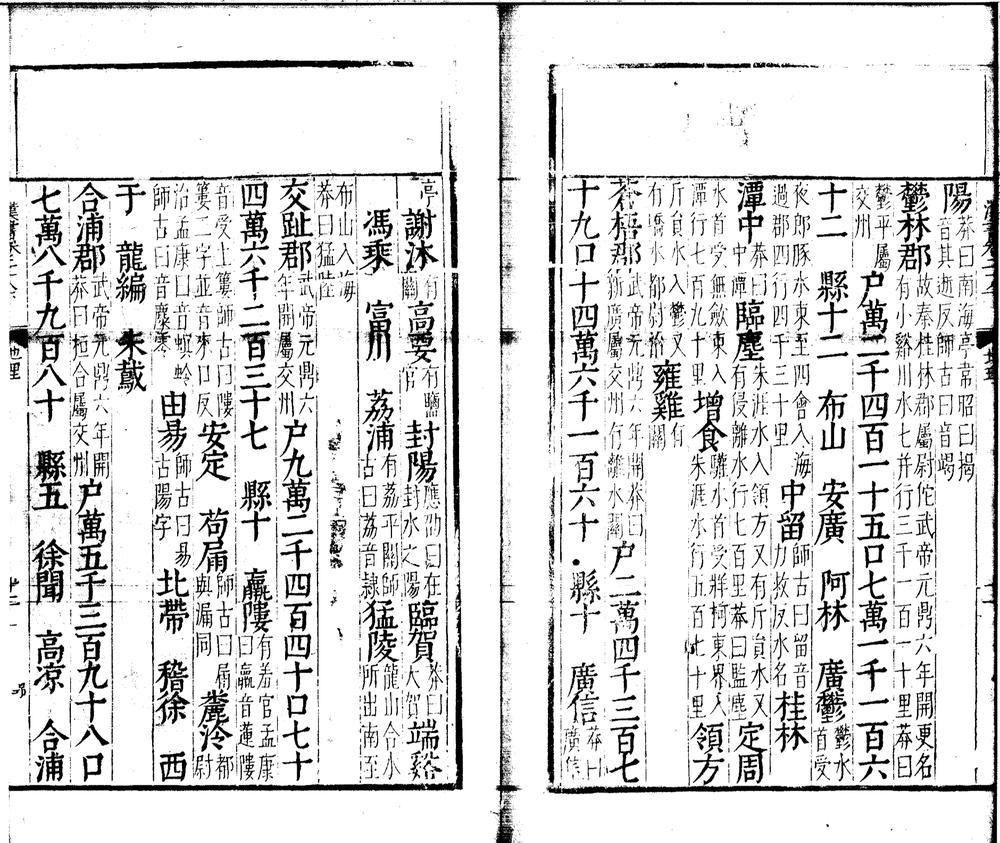 陽莽曰南海亭韋昭曰揭音其逝反師古曰音竭
鬱林郡故秦桂林郡屬尉佗武帝元鼎六年開更名有小谿川水七并行三千一百一十里莽曰
鬱平屬交州户萬二千四百一十五口七萬一千一百六
十二 縣十二 布山 安廣 阿林 廣鬱鬱水首受
夜郎豚水東至四會入海過郡四行四千三十里中留師古曰留音力救反水名桂林
潭中莽曰中潭臨塵朱涯水入領方又有斤員水又有侵離水行七百里莽曰監塵定周
水首受無斂東入潭行七百九十里增食驩水首受牂柯東界入朱涯水行五百七十里領方
斤員水入鬱又有有水都尉治雍雞有關
蒼梧郡武帝元鼎六年開莽曰新廣屬交州有離水關户二萬四千三百七
十九口十四萬六千一百六十·縣十 廣信莽曰廣信
亭謝沐有關高要有鹽官封陽應劭曰在封水之陽臨賀莽曰大賀端谿
馮乘 富川 荔浦有荔平關師古曰荔音隸猛陵龍山合水所出南至
布山入海莽曰猛陸
交趾郡武帝元鼎六年開屬交州户九萬二千四百四十口七十
四萬六千二百三十七 縣十 羸𨻻有羞官孟康曰羸音蓮𨻻
音受土簍師古曰𨻻簍二字並音來口反安定 苟屚師古曰屚與漏同麊泠都尉
治孟康曰音螟蛉師古曰音麋零曲昜師古曰昜古陽字北帶 稽徐 西
于 龍編 朱䳒
合浦郡武帝元鼎六年開莽曰桓合屬交州户萬五千三百九十八口
七萬八千九百八十 縣五 徐聞 高凉 合浦
地理